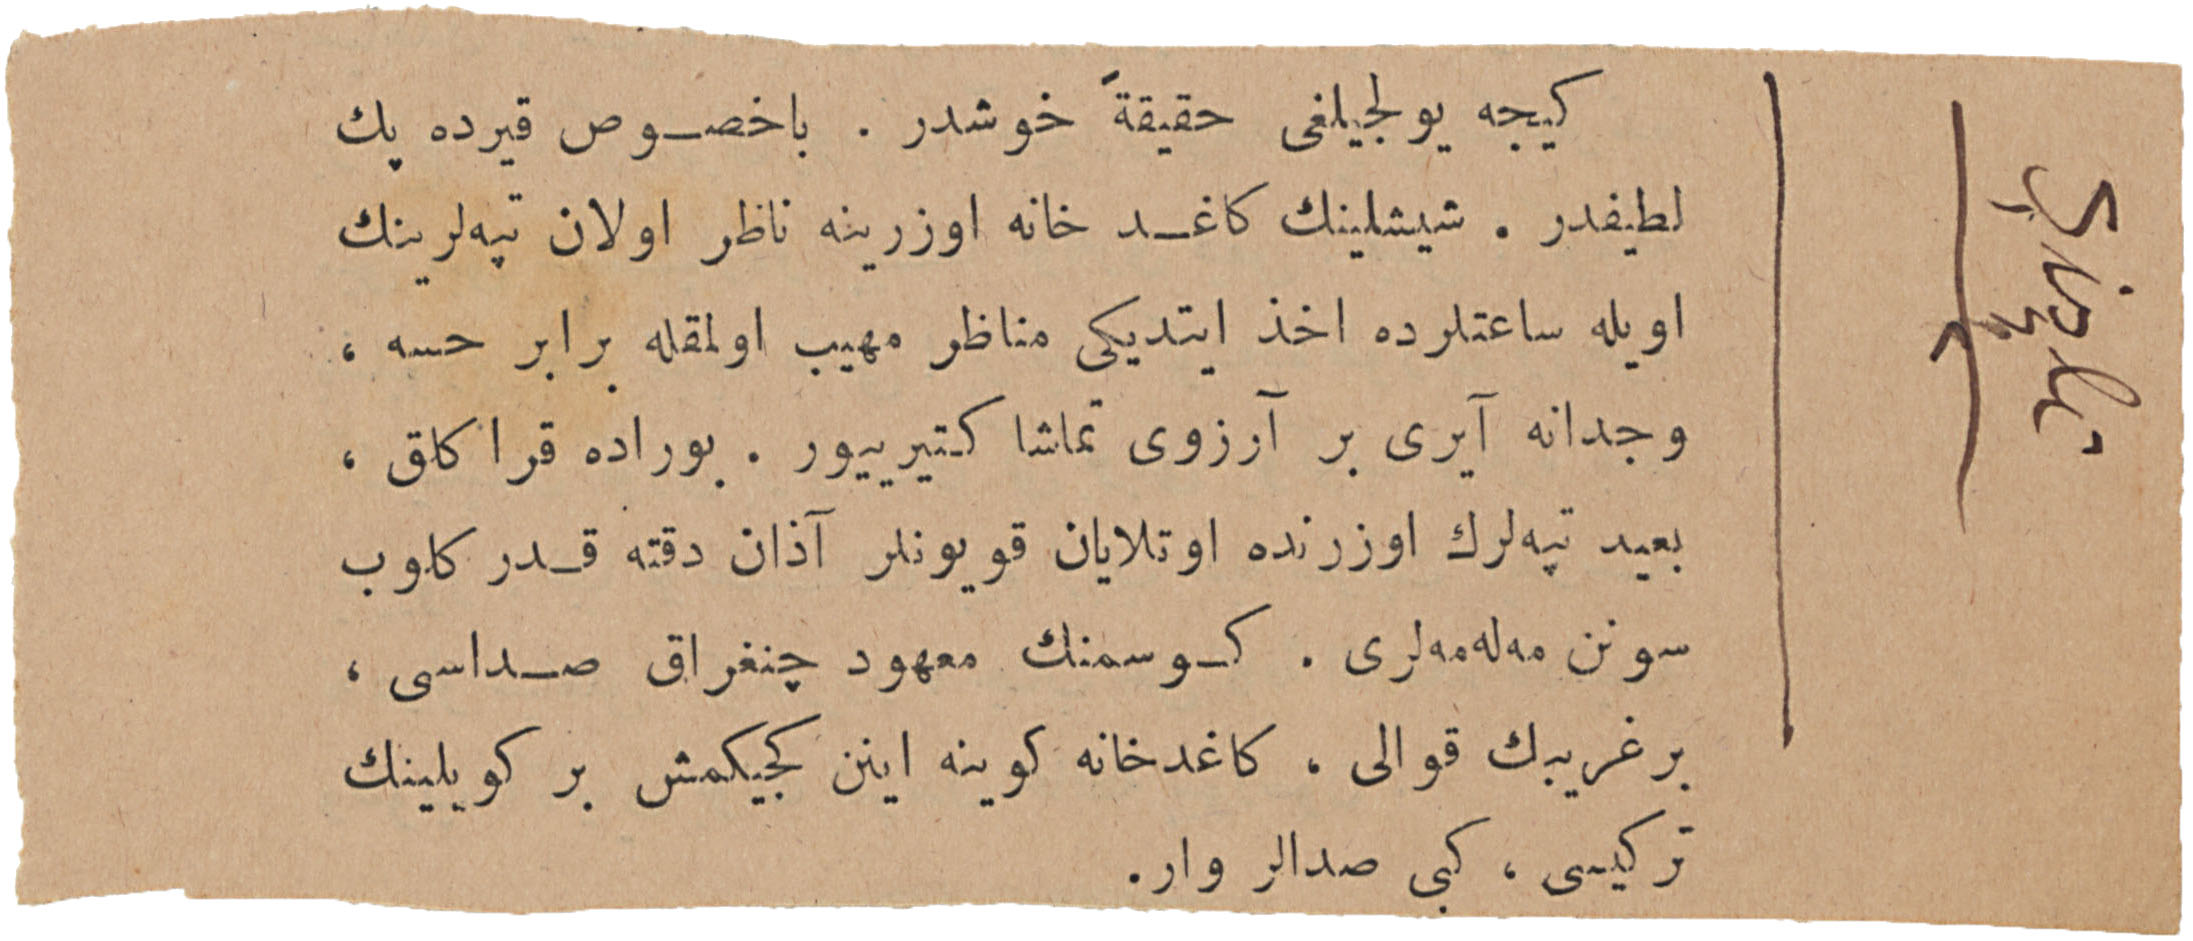 كیجه یولجیلغی حقیقةً خوشدر . باخصـوص قیرده پك
لطیفدر . شیشلینك كاغـد خانه اوزرینه ناظر اولان تپه‌لرینك
اویله ساعتلرده اخذ ایتدیكی مناظر مهیب اولمقله برابر حسه ،
وجدانه آیری بر آرزوی تماشا كتیرییور . بوراده قرا كلق ،
بعید تپه‌لرك اوزرنده اوتلایان قویونلر آذان دقته قـدر كلوب
سونن مه‌له‌مه‌لری . كـوسمنك معهود چنغراق صـداسی ،
بر غریبك قوالی ، كاغدخانه كوینه اینن كجیكمش بر كویلینك
تركیسی ، كبی صدالر وار .